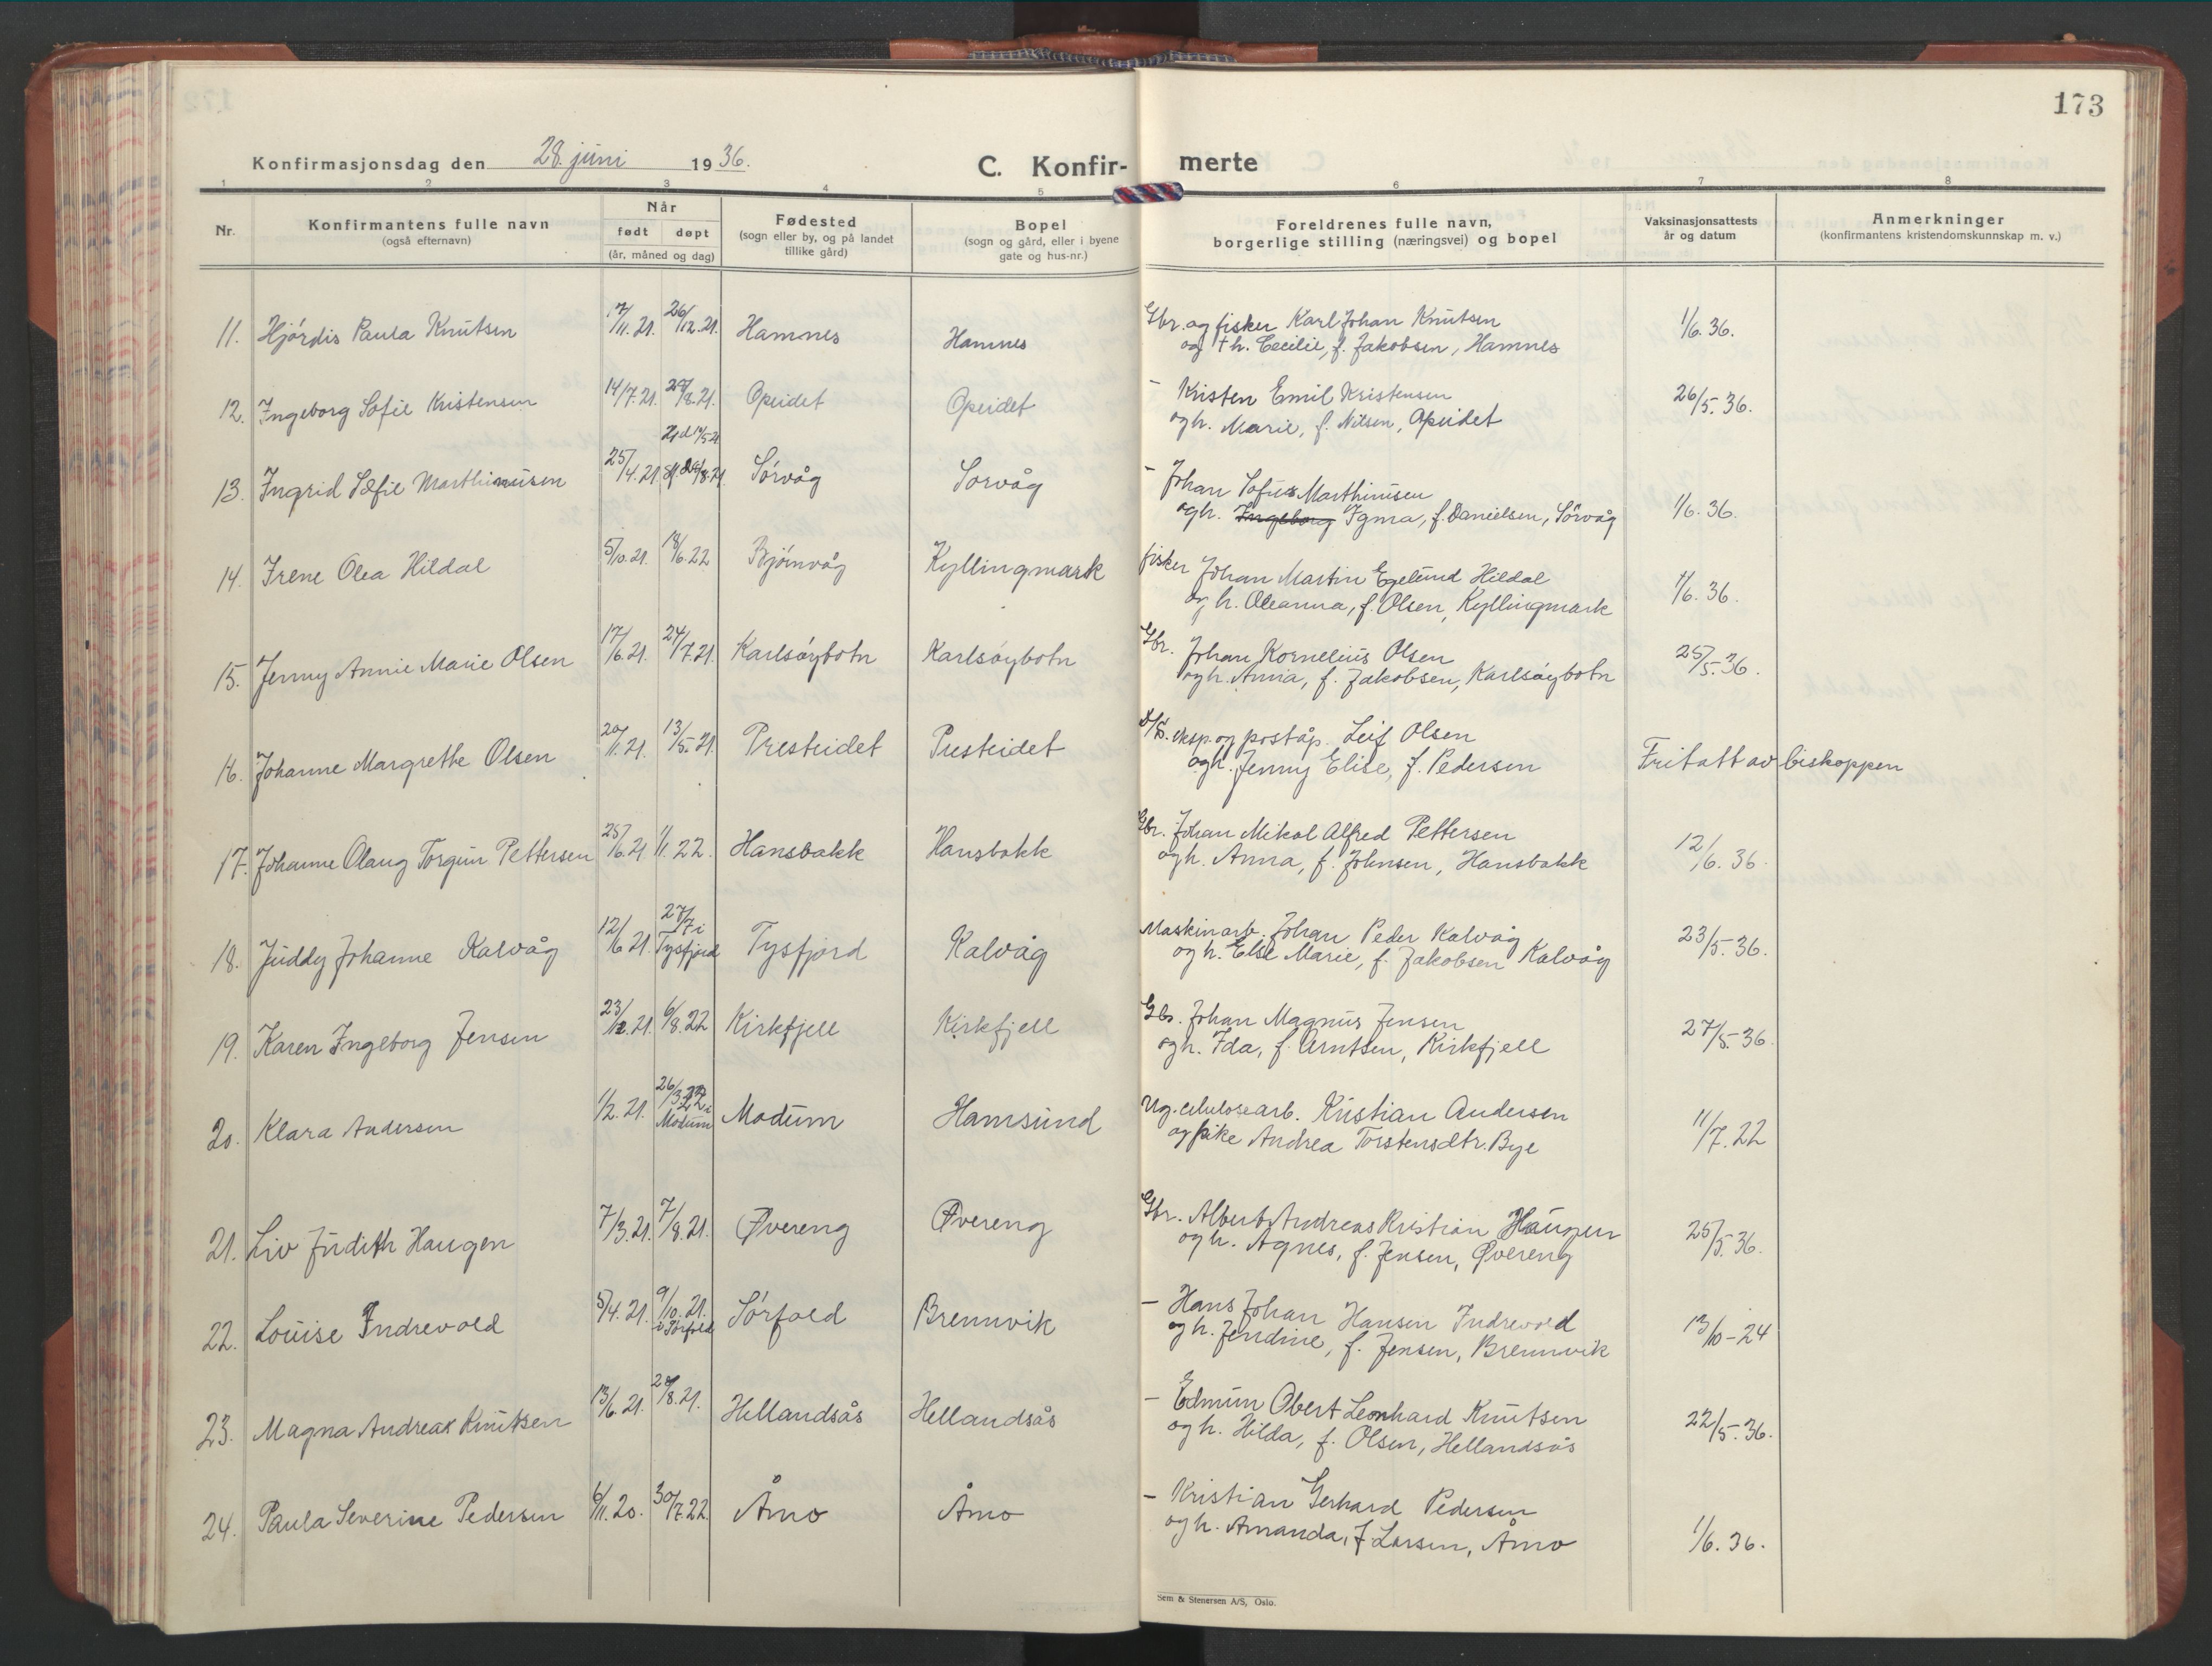 173
Konfirmasjonsdag den 28. juni 1936.
C. Konfir- merte
1 2 3 4 5 6 7 8
Nr.
Konfirmantens fulle navn
(også efternavn)
Når
født døpt
(år, måned og dag)
Fødested
(sogn eller by, og på landet
tillike gård)
Bopel
(sogn og gård, eller i byene
gate og hus-nr.)
Foreldrenes fulle navn,
borgerlige stilling (næringsvei) og bopel
Vaksinasjonsattests
år og datum
Anmerkninger
(konfirmantens kristendomskunnskap m. v.)
11. Hjórdis Paula Knutsen 17/11.21. 26/12.21. Hamnes Hamnes Gbr. og fisker Karl Johan Knutsen 1/6.36.
og † h. Cecilie, f. Jakobsen, Hamnes
12. Ingeborg Sofie Kristensen 14/7.21. 28/8.21. Opeidet Opeidet - Kristen Emil Kristensen 26/5.36.
og h. Marie, f. Nilsen, Opeidet
13. Ingrid Sofie Marthinusen 25/4.21. Sórvåg Sorvåg - Johan Sofus Marthinusen 1/6.36.
og h. Ingeborg Igma, f. Danielsen, Sórvåg
14. Irene Olea Hildal 5/10.21. 18/6.22 Bjórnvåg Kyllingmark fisker Johan Martin Egelund Hildal 1/6.36.
og h. Oleanna, f. Olsen, Kyllingmark
15. Jenny Annie Marie Olsen 17/6.21. 24/7.21. Karlsóybotn Karlsóybotn Gbr. Johan Kornelius Olsen 25/5.36.
og h. Anna, f. Jakobsen, Karlsóybotn
16. Johanne Margrethe Olsen 20/11.21. 13/5.21. Presteidet Presteidet D/S. eksp. og poståp. Leif Olsen Fritatt av biskoppen
og h. Jenny Elise, f. Pedersen
17. Johanne Olaug Torgun Pettersen 25/6.21 1/1.22. Hansbakk Hansbakk Gbr. Johan Mikal Alfred Pettersen 12/6.36.
og h. Anna, f. Johnsen, Hansbakk
18. Juddy Johanne Kalvåg 12/6 21. 27/7 i Tysfjord Tysfjord Kalvåg Maskinarb. Johan Peder Kalvåg 23/5.36.
og h. Else Marie, f. Jakobsen Kalvåg
19. Karen Ingeborg Jensen 23/12.21. 6/8.22 Kirkfjell Kirkfjell Gbr. Johan Magnus Jensen 27/5.36.
og h. Ida, f. Arntsen, Kirkfjell
20. Klara Andersen 1/2.21. 26/3.22 i Modum Modum Hamsund Ug. celulosearb. Kristian Andersen 11/7.22
og pike Andrea Torstensdtr. Bye
21. Liv Judith Haugen 7/3.21. 7/8.21. Øvereng Øvereng Gbr. Albert Andreas Kristian Haugen 25/5.36.
og h. Agnes, f. Jensen, Øvereng
22. Louise Indrevold 5/4.21. 9/10.21. i Sórfold Sórfold Brennvik - Hans Johan Hansen Indrevold 13/10-24
og h. Jendine, f. Jensen, Brennvik
23. Magna Andreas Knutsen 13/6.21. 28/8.21. Hellandsås Hellandsås - Edmun Obert Leonhard Knutsen 22/5-36.
og h. Hilda, f. Olsen, Hellandsås
24. Paula Severine Pedersen 6/11.20. 30/7.22. Åmo Åmo - Kristian Gerhard Pedersen 1/6.36.
og h. Amanda, f. Larsen, Åmo
Sem & Stenersen A/S, Oslo.